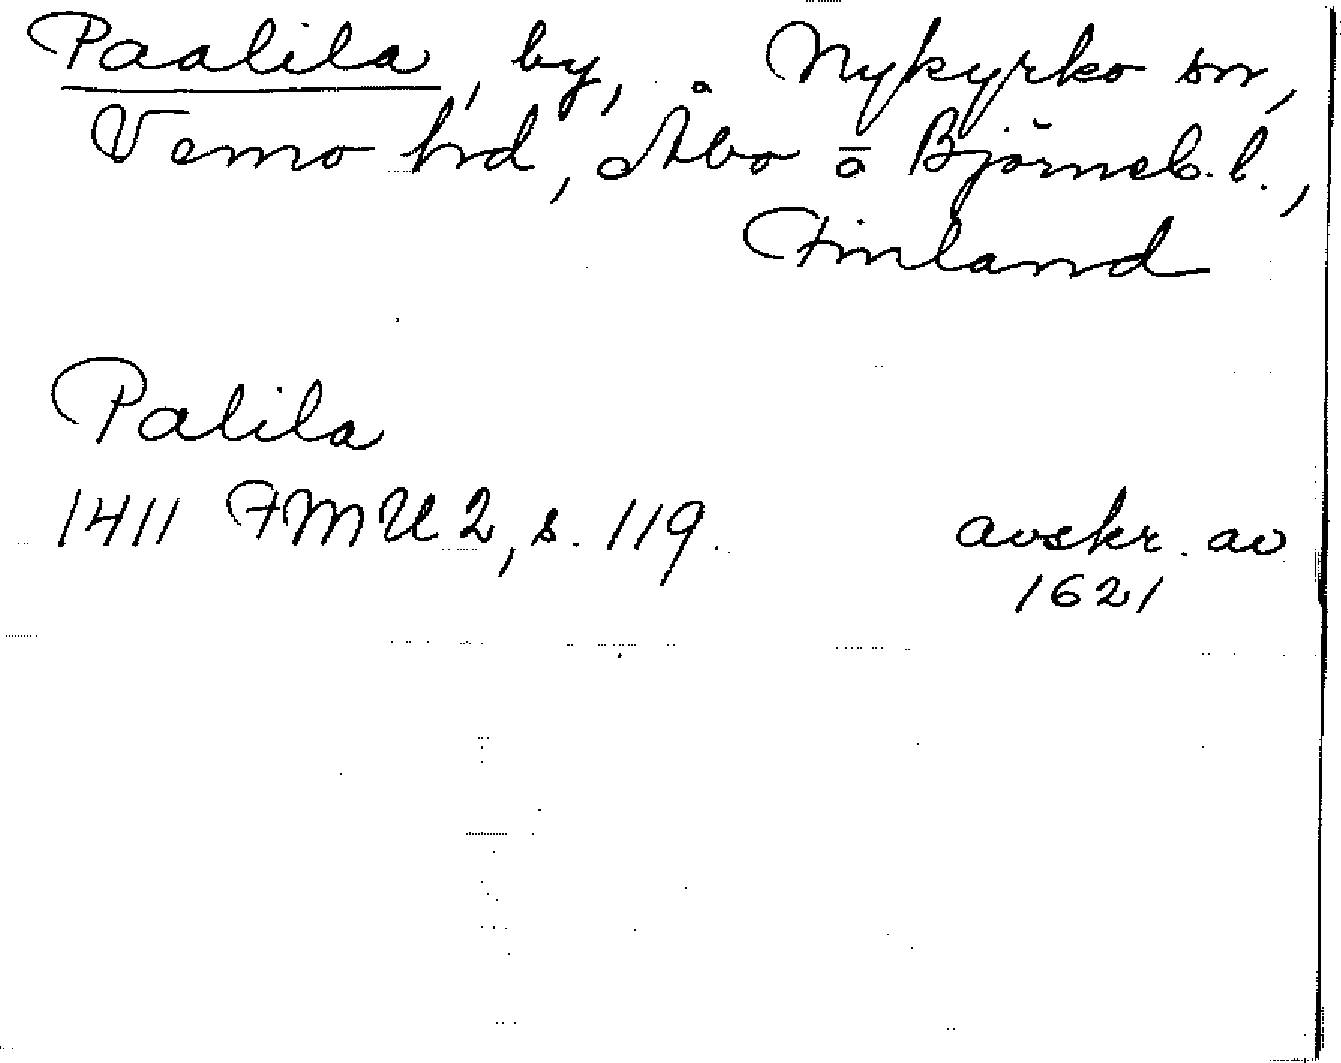 Paalila, by, Nykyrko sn,
Vemo hrd, Åbo o Björneb. l.,
Finland
Palila
1411 FMU 2, s. 119. avskr. av
1621